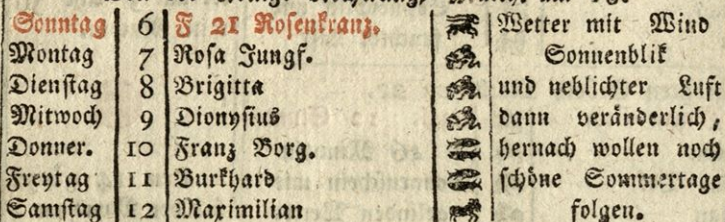 Sonntag 6 F 21 Rosenkranz. Wetter mit Wind
Montag 7 Rosa Jungf. Sonnenblik
Dienstag 8 Brigitta und neblichter Luft
Mitwoch 9 Dionysius dann veränderlich,
Donner. 10 Franz Borg. hernach wollen noch
Freytag 11 Burkhard schöne Sommertage
Samstag 12 Maximilian folgen.